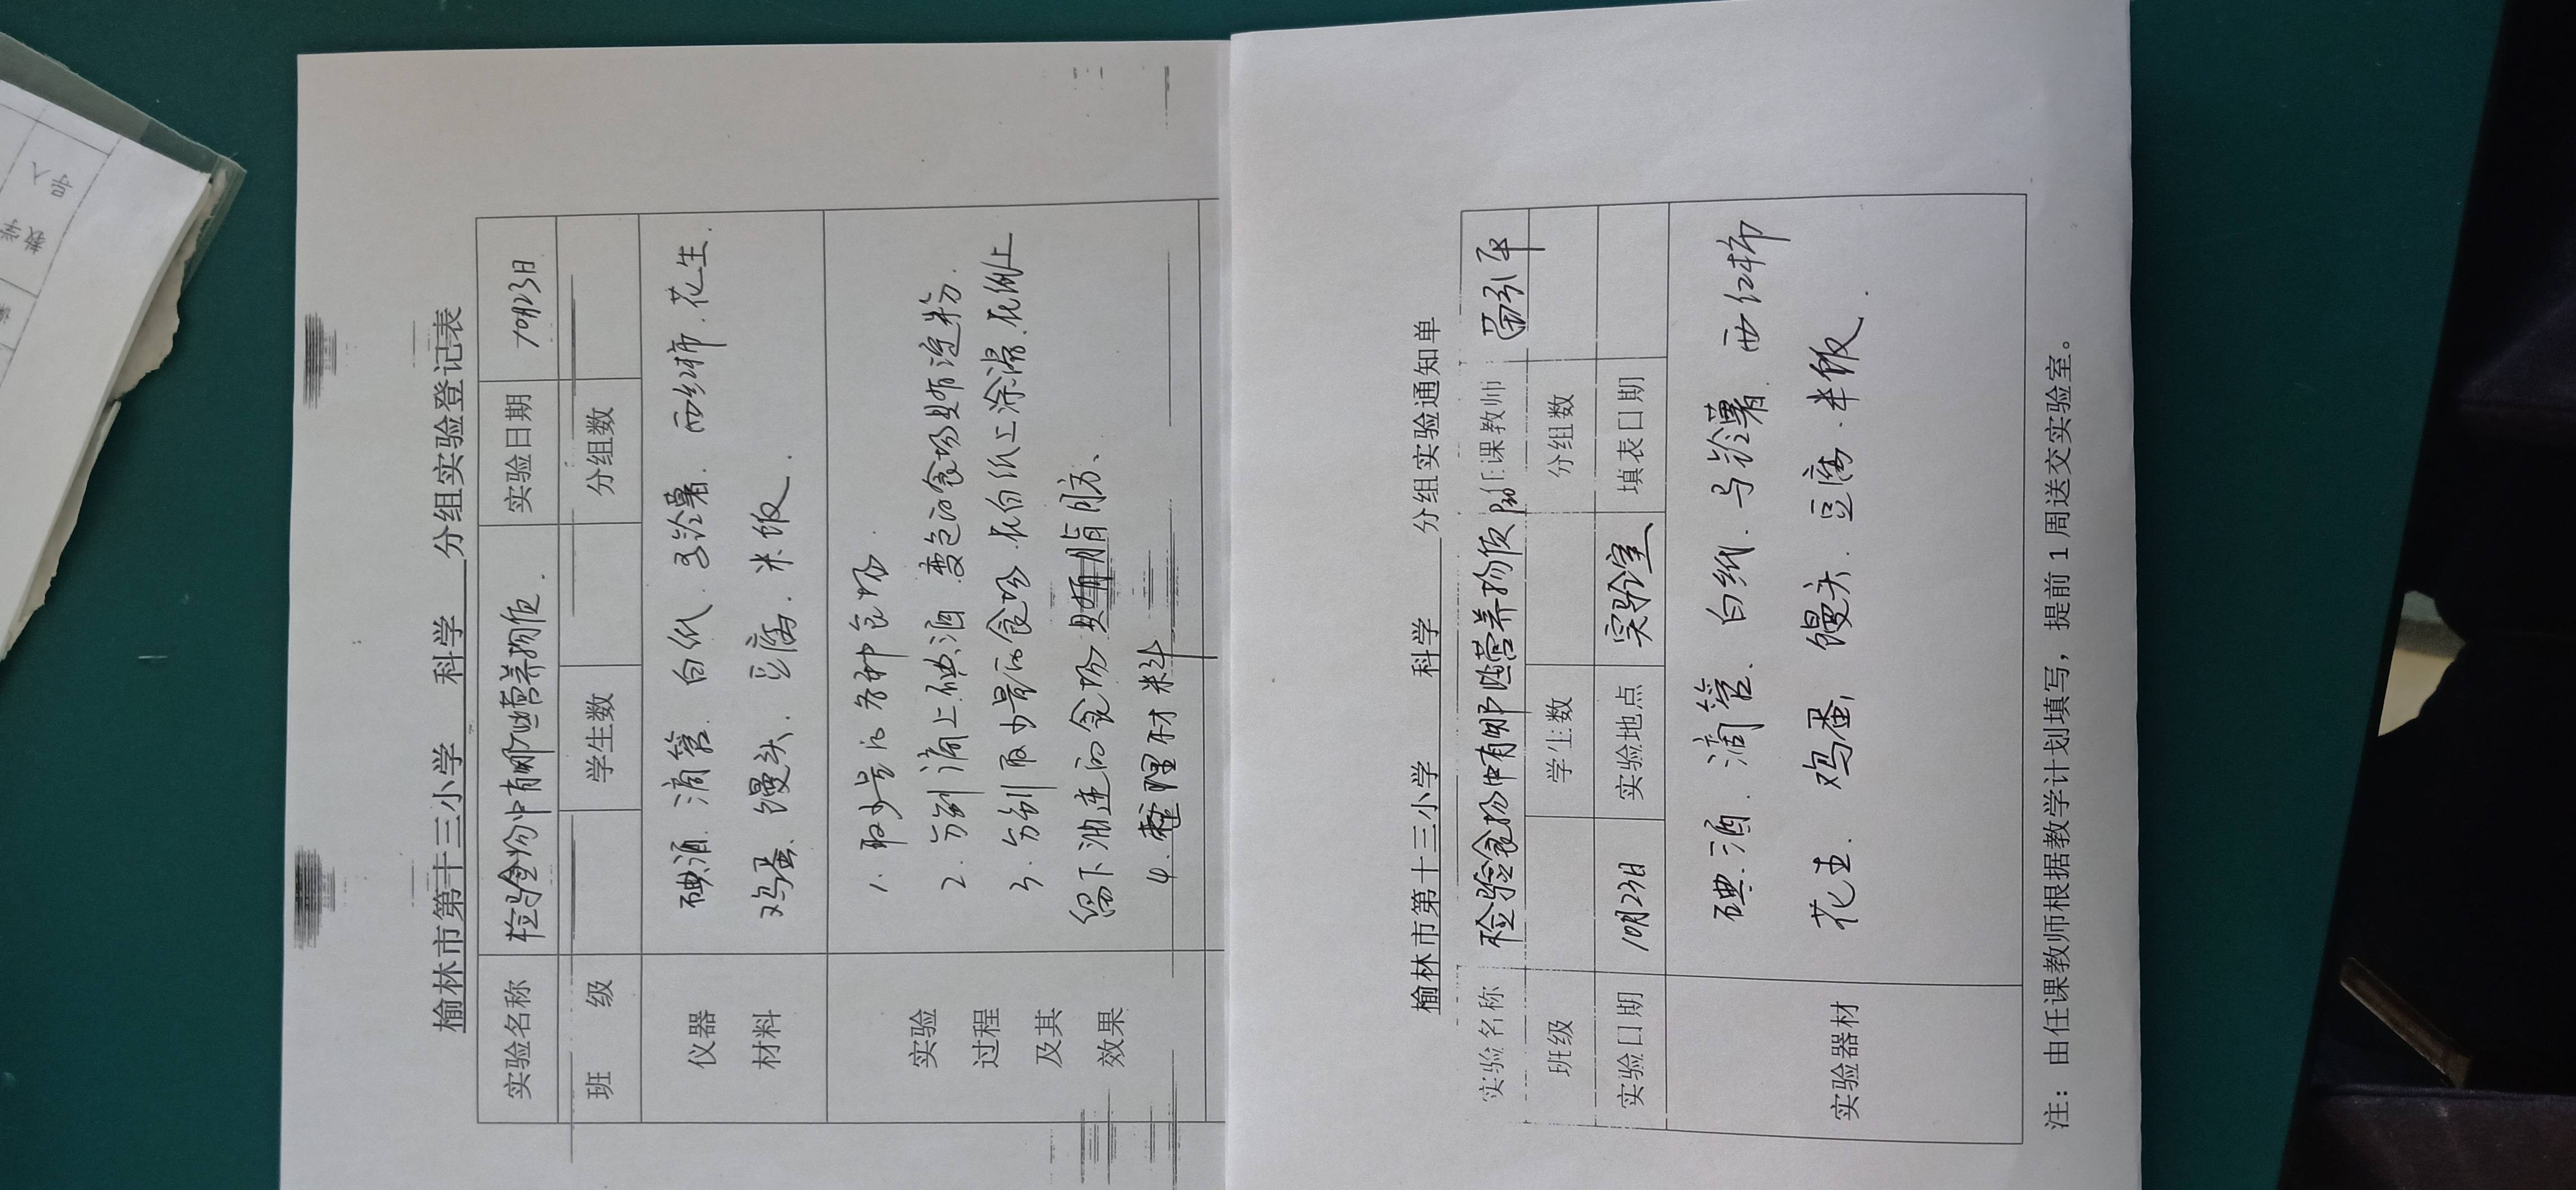 榆林市第十三小学 科学 分组实验登记表
实验名称 检验食物中有哪些营养物质. 实验日期 10月23日
班 级 学生数 分组数
仪器 材料
碘酒. 滴管. 白纸. 马铃薯. 西红柿. 花生.
鸡蛋. 馒头. 豆腐. 米饭.
实验 过程 及其 效果
1. 取少量的各种食物.
2. 分别滴上碘酒 变色的食物是淀粉.
3. 分别取少量的食物.在白纸上涂滑.在纸上
留下油迹的食物 是有脂肪、
4. 整理材料
榆林市第十三小学 科学 分组实验通知单
实验名称 检验食物中有哪些营养物质 任课教师
班级 学生数 分组数
实验日期 10月23日 实验地点 实验室 填表日期
实验器材
碘酒. 滴管. 白纸. 马铃薯. 西红柿
花生. 鸡蛋, 馒头. 豆腐. 米饭.
注：由任课教师根据教学计划填写，提前 1 周送交实验室。